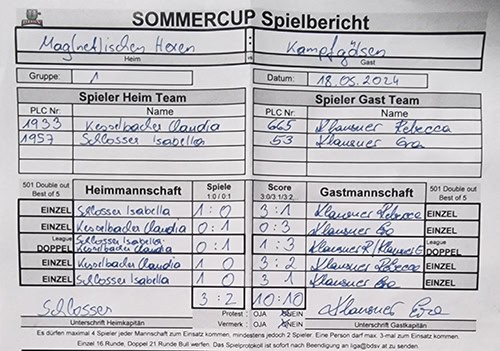 SOMMERCUP Spielbericht
Mag(net)ischen Hexen
Kampfgösen
Heim
Gast
Gruppe: 1
Datum: 18.05.2024
Spieler Heim Team
Spieler Gast Team
PLC Nr. Name
PLC Nr. Name
1933 Kesselbacher Claudia
665 Klausner Rebecca
1957 Schlosser Isabella
53 Klausner Eva
501 Double out Best of 5
Heimmannschaft
Spiele 1:0 / 0:1
Score 3:0/3:1/3:2
Gastmannschaft
501 Double out Best of 5
EINZEL Schlosser Isabella 1 : 0 3 : 1 Klausner Rebecca EINZEL
EINZEL Kesselbacher Claudia 0 : 1 0 : 3 Klausner Eva EINZEL
League DOPPEL Schlosser Isabella Kesselbacher Claudia 0 : 1 1 : 3 Klausner R/Klausner E League DOPPEL
EINZEL Kesselbacher Claudia 1 0 3 : 2 Klausner Rebecca EINZEL
EINZEL Schlosser Isabella 1 0 3 : 1 Klausner Eva EINZEL
3 : 2 10:10
Schlosser
Klausner Eva
Protest : OJA NEIN
Unterschrift Heimkapitän
Vermerk : OJA NEIN
Unterschrift Gastkapitän
Es dürfen maximal 4 Spieler jeder Mannschaft zum Einsatz kommen, mindestens jedoch 2 Spieler. Eine Person darf max. 3-mal zum Einsatz kommen.
Einzel 16 Runde, Doppel 21 Runde Bull werfen. Das Spielprotokoll ist sofort nach Beendigung an liga@tdbv.at zu senden.